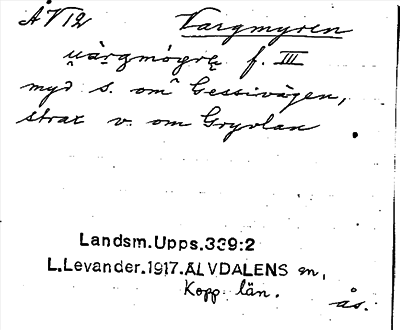 ÅV12 Vargmyren
u̯àrgmògrę f. III
myr s. om Gessivägen,
strax v. om Gryvlan
Landsm.Upps.339:2
L.Levander.1917.ÄLVDALENS sn,
Kopp. län.
ås.